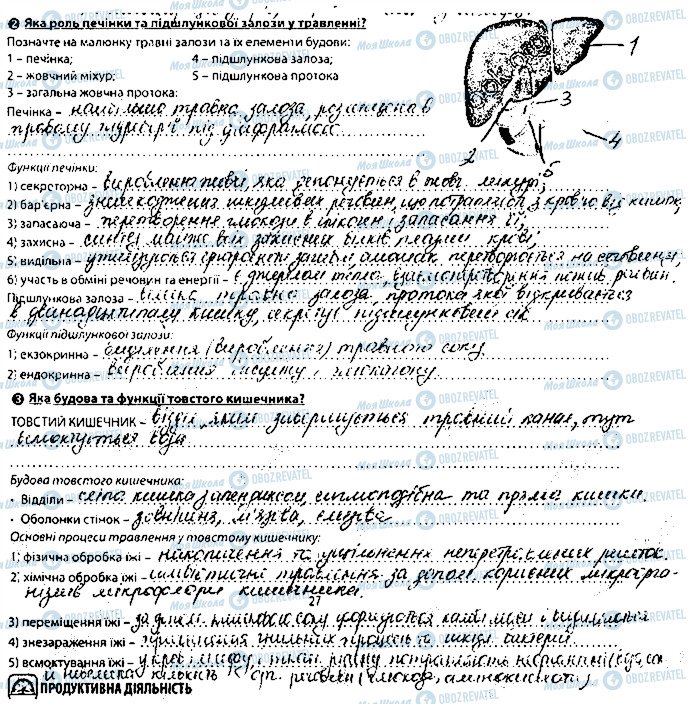 ❷ Яка роль печінки та підшлункової залози у травленні?
Позначте на малюнку травні залози та їх елементи будови:
1 – печінка; 4 – підшлункова залоза;
2 – жовчний міхур; 5 – підшлункова протока
3 – загальна жовчна протока:
Печінка – найбільша травна залоза, розташована в
правому підребер'ї під діафрагмою
Функції печінки:
1) секреторна – вироблення жовчі, яка депонується в жовч. міхурі;
2) бар'єрна – знешкодження шкідливих речовин, що потрапляють з кров'ю від кишок;
3) запасаюча – перетворення глюкози в глікоген і запасання її;
4) захисна – синтез майже всіх захисних білків плазми крові;
5) видільна – утворюється амоніак перетворюється на сечовину;
6) участь в обміні речовин та енергії – є джерелом тепла,
Підшлункова залоза – велика травна залоза, протока якої відкривається
в дванадцятипалу кишку, секретує підшлунковий сік
Функції підшлункової залози:
1) екзокринна – виділення (вироблення) травного соку
2) ендокринна – вироблення інсуліну і глюкагону
❸ Яка будова та функції товстого кишечника?
ТОВСТИЙ КИШЕЧНИК – відділ, яким завершується травний канал, тут
всмоктується вода
Будова товстого кишечника:
• Відділи – сліпа кишка з апендиксом, сигмоподібна та пряма кишки.
• Оболонки стінок – зовнішня, м'язова, слизова
Основні процеси травлення у товстому кишечнику:
1) фізична обробка їжі – накопичення та ущільнення неперетравлених решток.
2) хімічна обробка їжі – симбіотичні травлення за допом. корисних мікроорга-
нізмів мікрофлори кишечника.
27
3) переміщення їжі – формуються калові маси і
4) знезараження їжі – гнильних процесів та шкідл. бактерій
5) всмоктування їжі – у кров і лімфу
и невелика кількість орг. речовин (глюкоза, амінокислоти)
ПРОДУКТИВНА ДІЯЛЬНІСТЬ
1
2
3
4
5
Моя Школа OBOZREVATEL